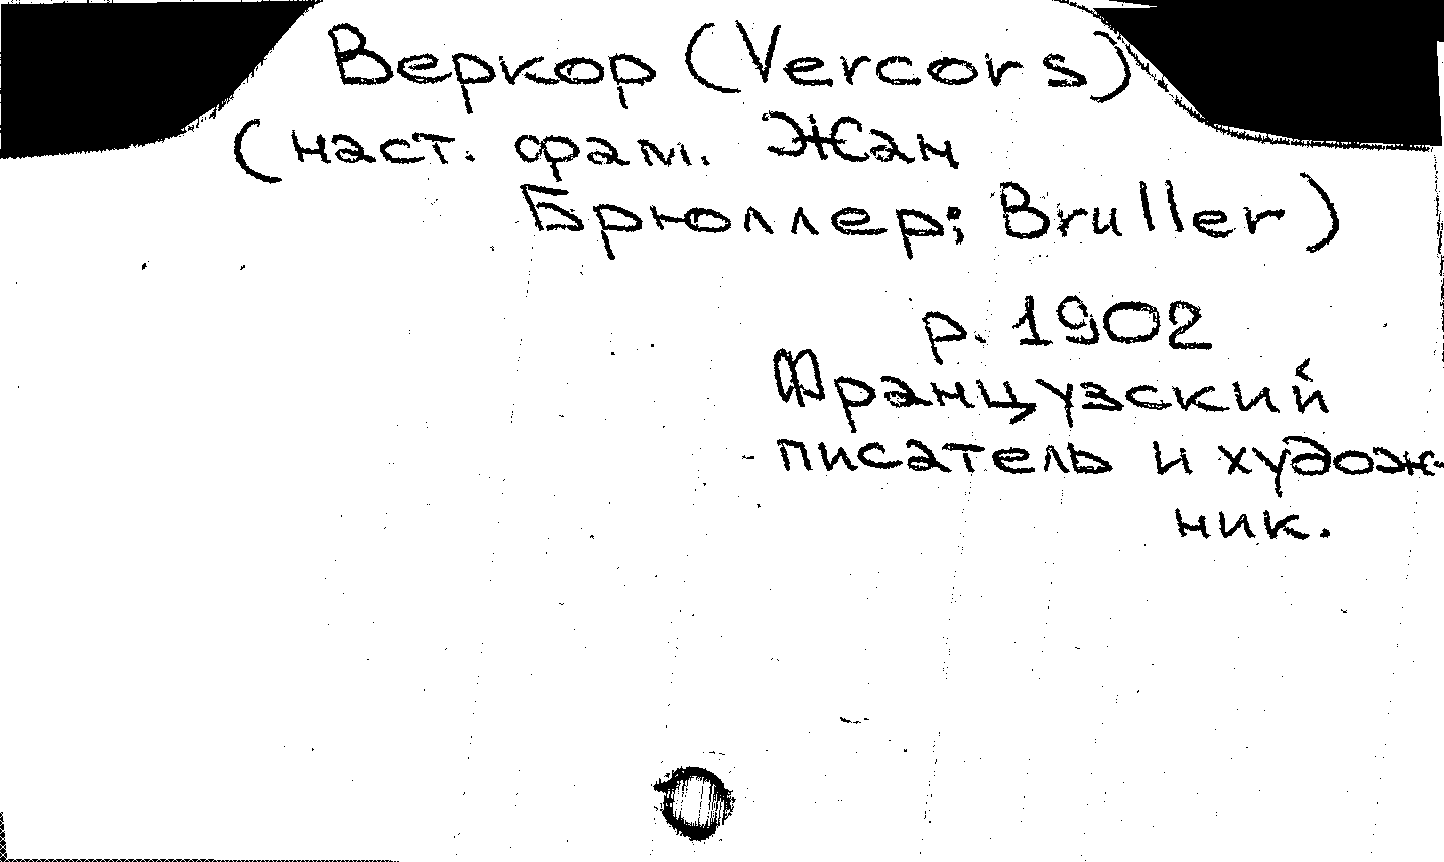 Веркор (Vercors)
(наст. фам. Жан
Брюллер; Bruller)
р. 1902
Французский
писатель и худож-
ник.